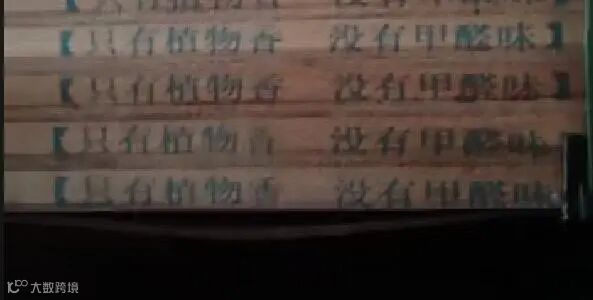 【只有植物香 没有甲醛味】
【只有植物香 没有甲醛味】
【只有植物香 没有甲醛味】
【只有植物香 没有甲醛味
【只有植物香 没有甲醛味
大数跨境